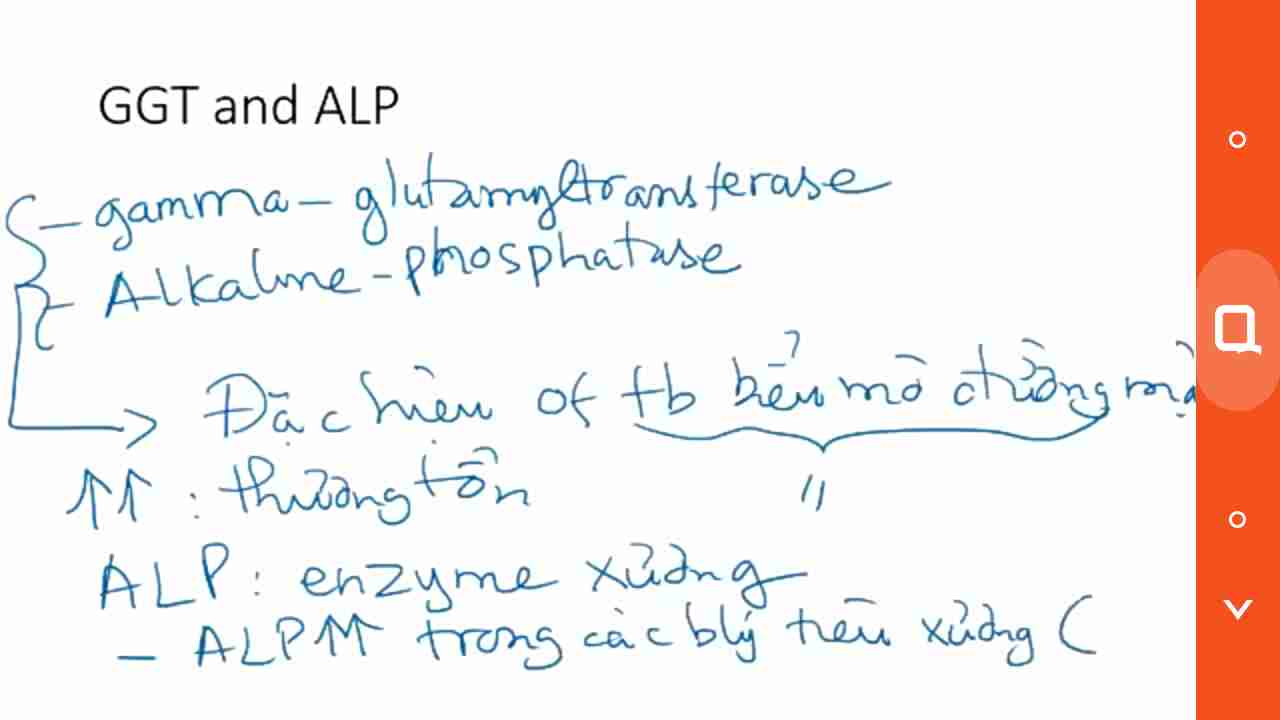 GGT and ALP
- gamma - glutamyltransferase
- Alkaline - phosphatase
Đặc hiệu of tb biểu mô đường mậ
↑↑ : thương tổn
"
ALP : enzyme xương
- ALP↑↑ trong các blý tiêu xương (